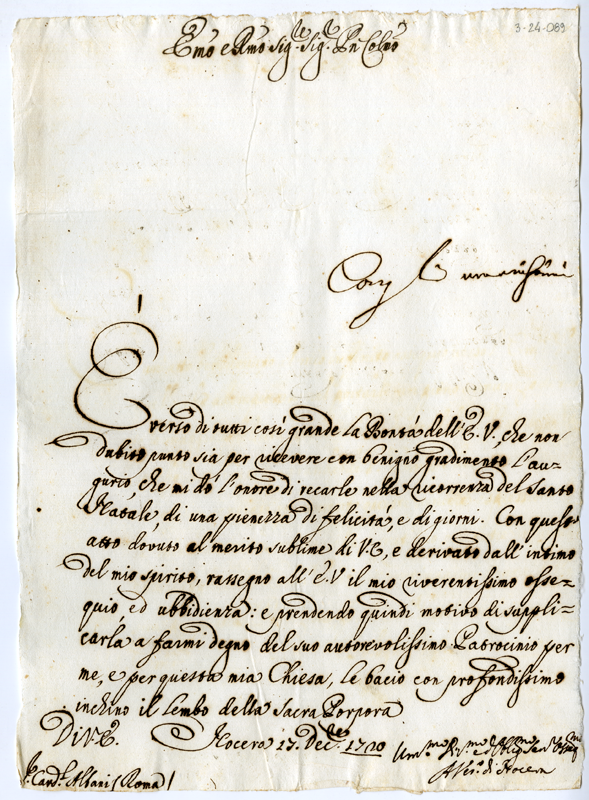 3-24-089
Emo e Rmo Sig.re Sig.r Pn Colmo
È verso di tutti così grande la Bontà dell'E.V., che non
dubito punto sia per ricevere con benigno gradimento l'au-
gurio, che mi dò l'onore di recarle nella ricorrenza del Santo
Natale, di una pienezza di felicità, e di giorni. Con questo
atto dovuto al merito sublime di V.E, e derivato dall'intimo
del mio spirito, rassegno all'E.V il mio riverentissimo osse=
quio, ed ubbidienza: e prendendo quindi motivo di suppli=
carla a farmi degno del suo autorevolissimo Patrocinio per
me, e per questa mia Chiesa, le bacio con profondissimo
inchino il lembo della Sacra Porpora
Di V.E. Nocera 17. Decre 1720 Ummo
A Ves.o di Nocera
Card. Albani (Roma)